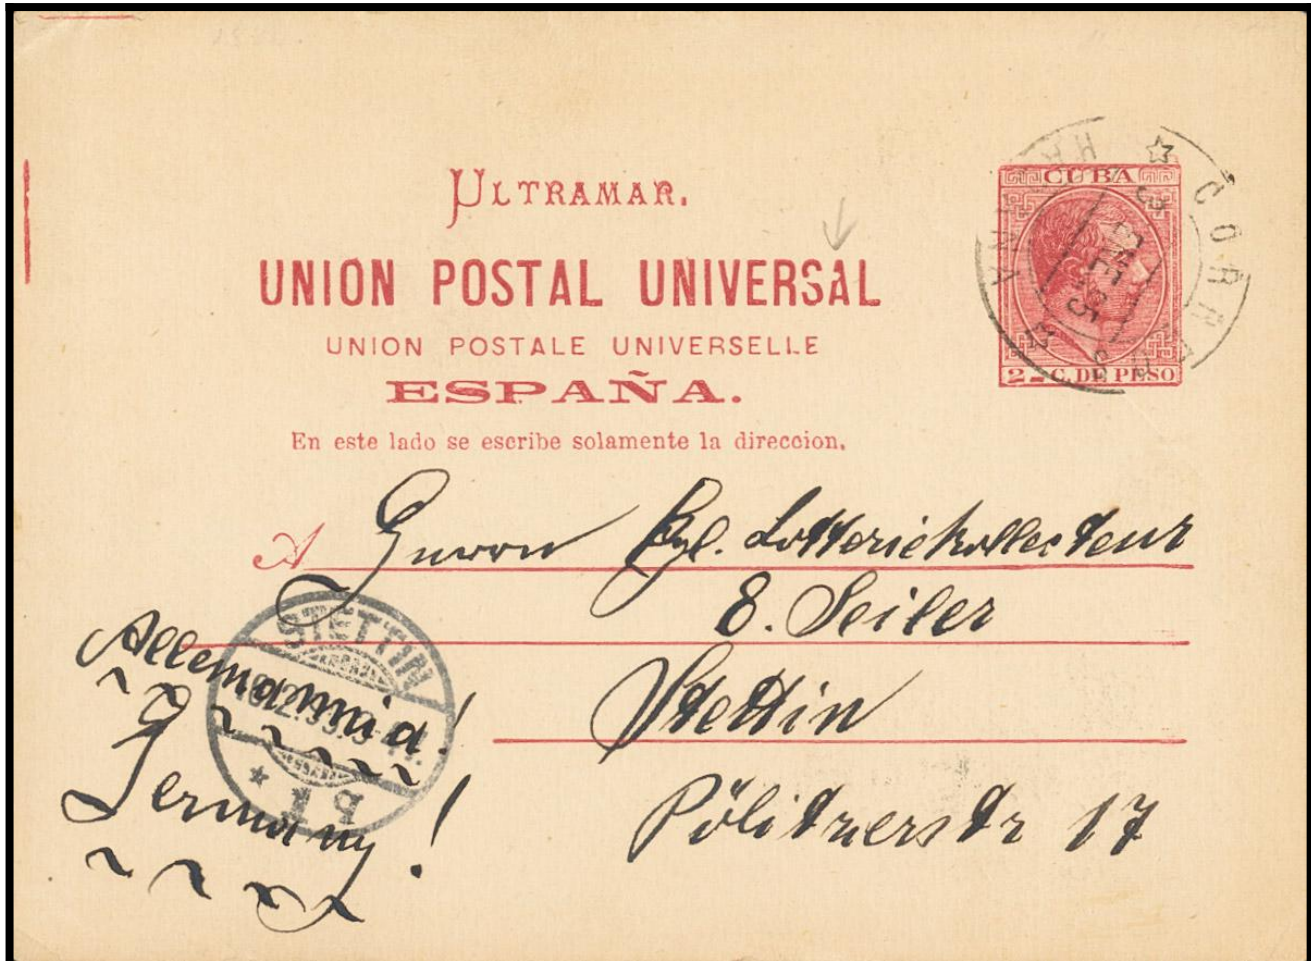 ULTRAMAR.
CUBA
UNION POSTAL UNIVERSAL
UNION POSTALE UNIVERSELLE
ESPAÑA.
2 - C. DE PESO
En este lado se escribe solamente la direccion.
A Herrn Kgl. Lotteriekollecteur
E. Seiler
Stettin
Pölitzerstr 17
Allemannia!
Germany!
STETTIN